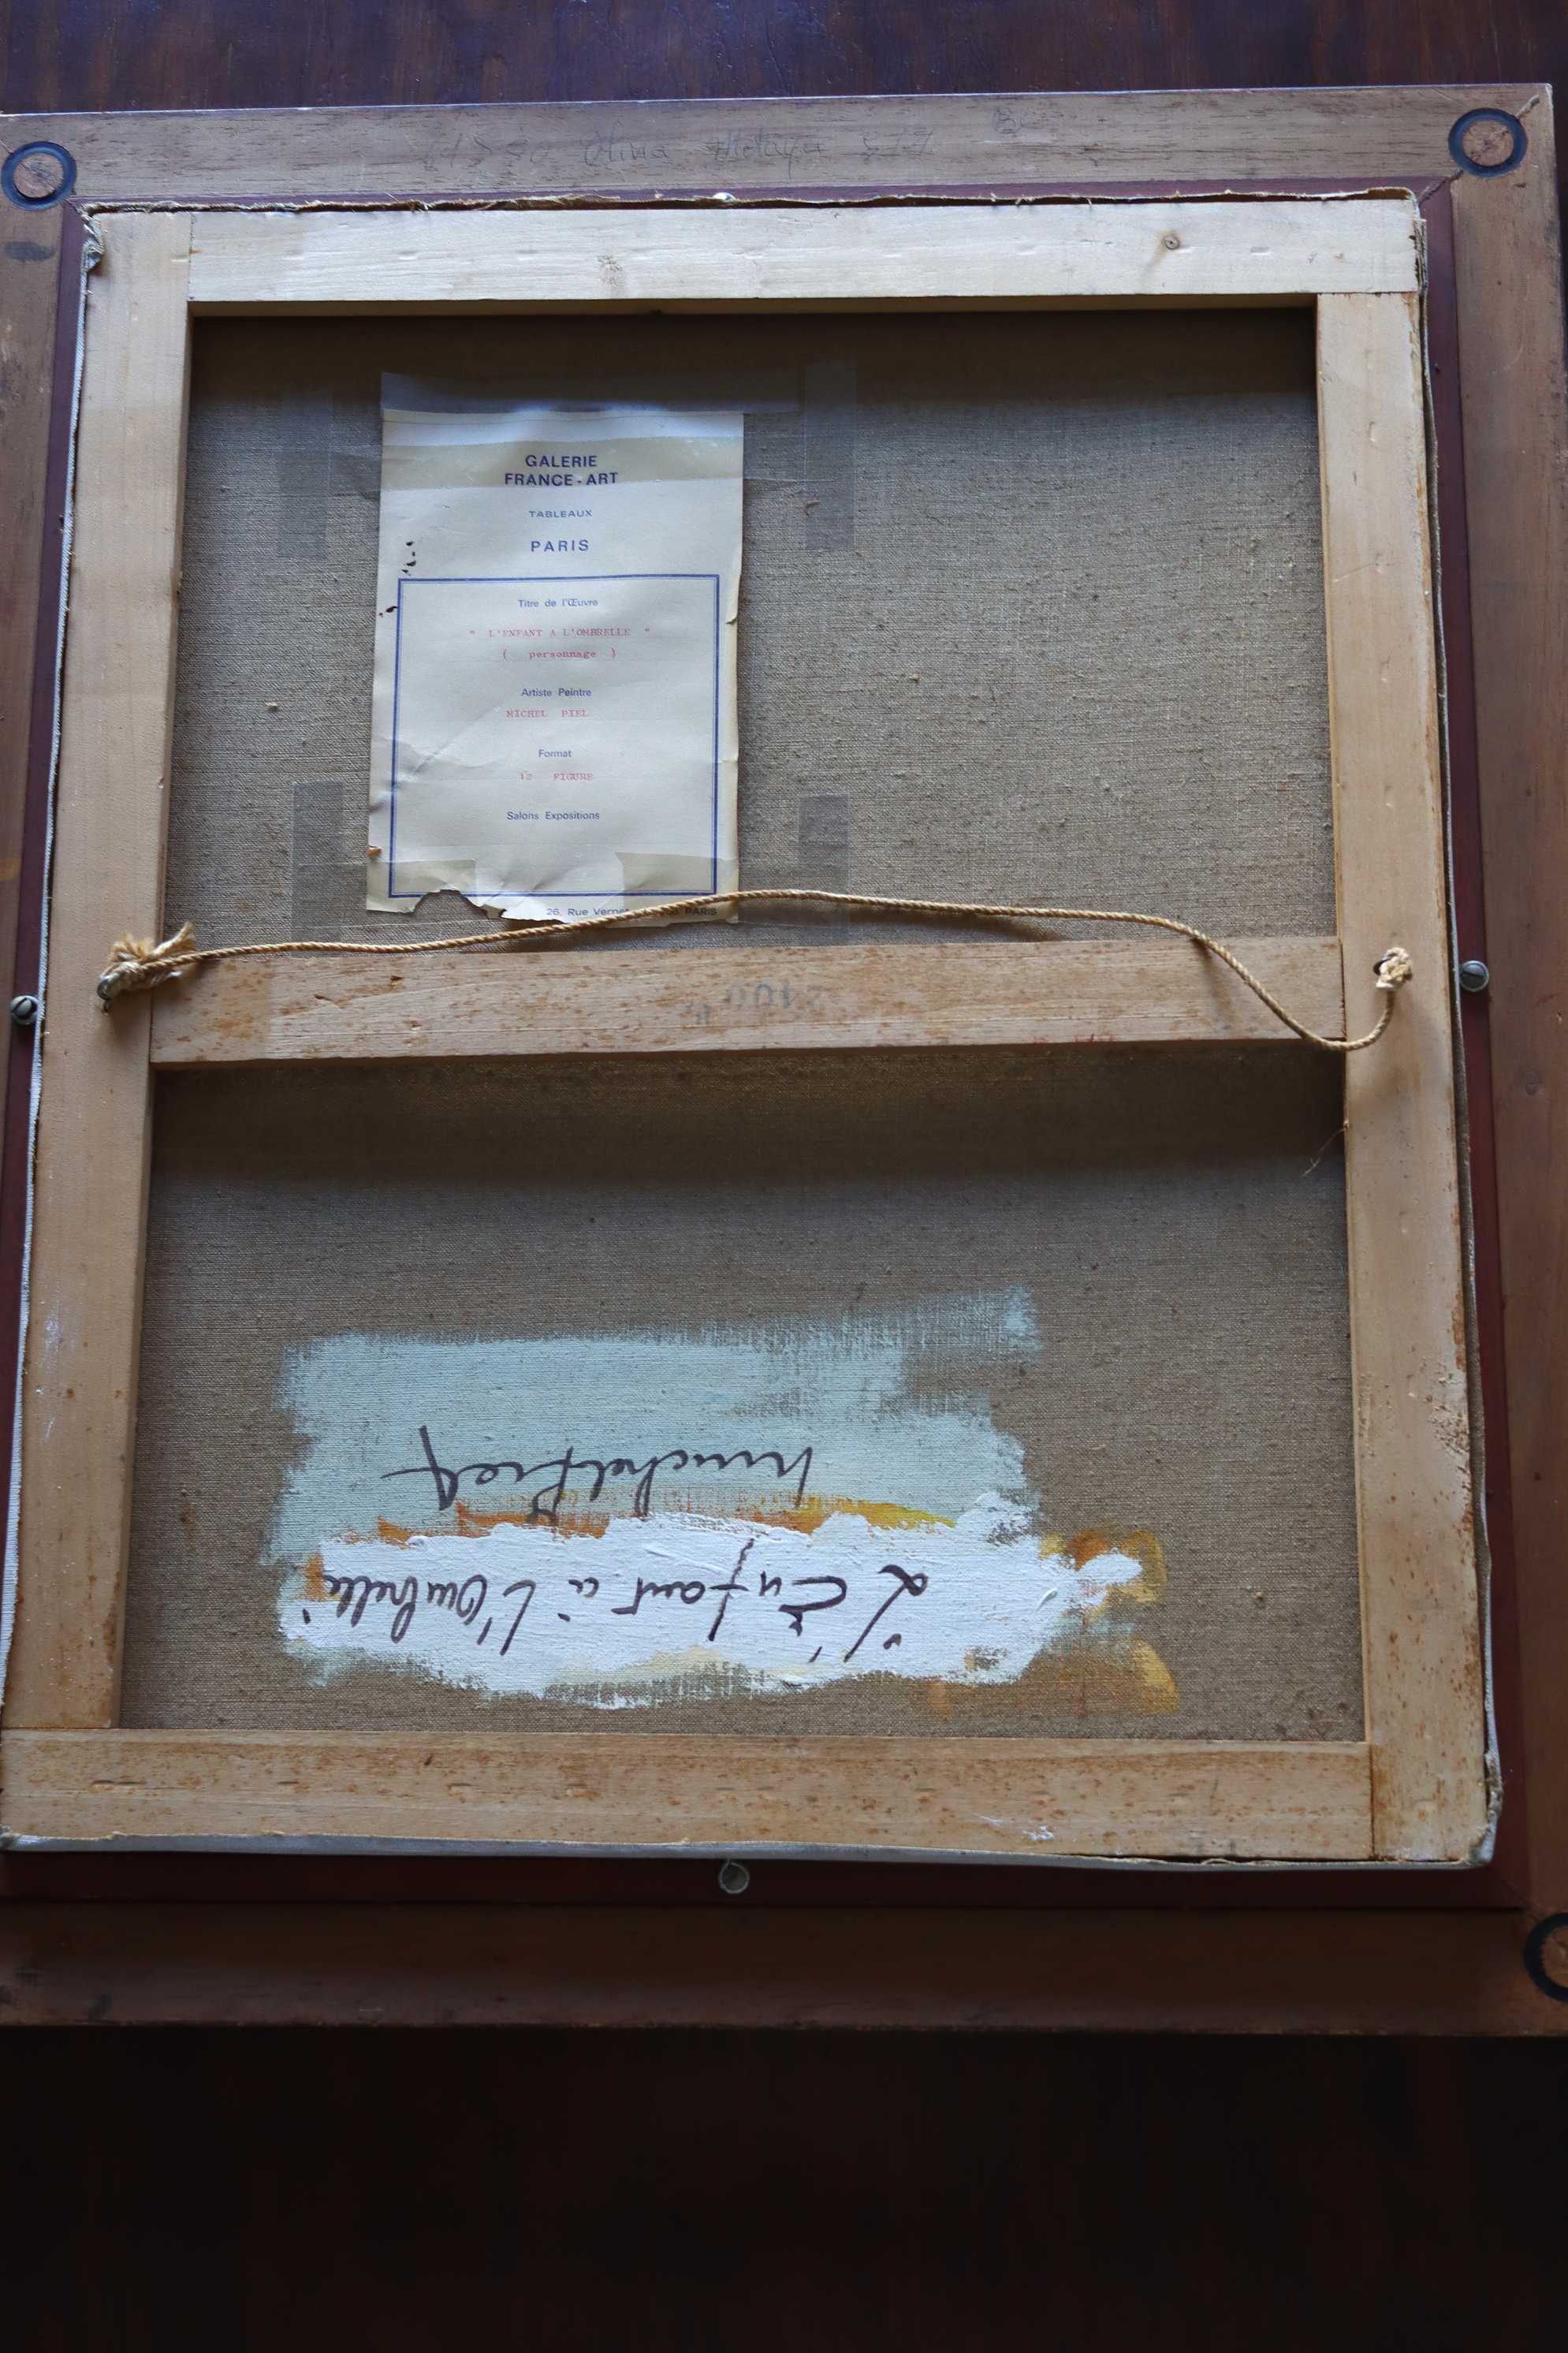 GALERIE
FRANCE-ART
TABLEAUX
PARIS
Titre de l'Œuvre
" L'ENFANT A L'OMBRELLE "
( personnage )
Artiste Peintre
MICHEL PIEL
Format
12 FIGURE
Salons Expositions
26, Rue PARIS
michel Piel
"L'Enfant à l'Ombrelle"